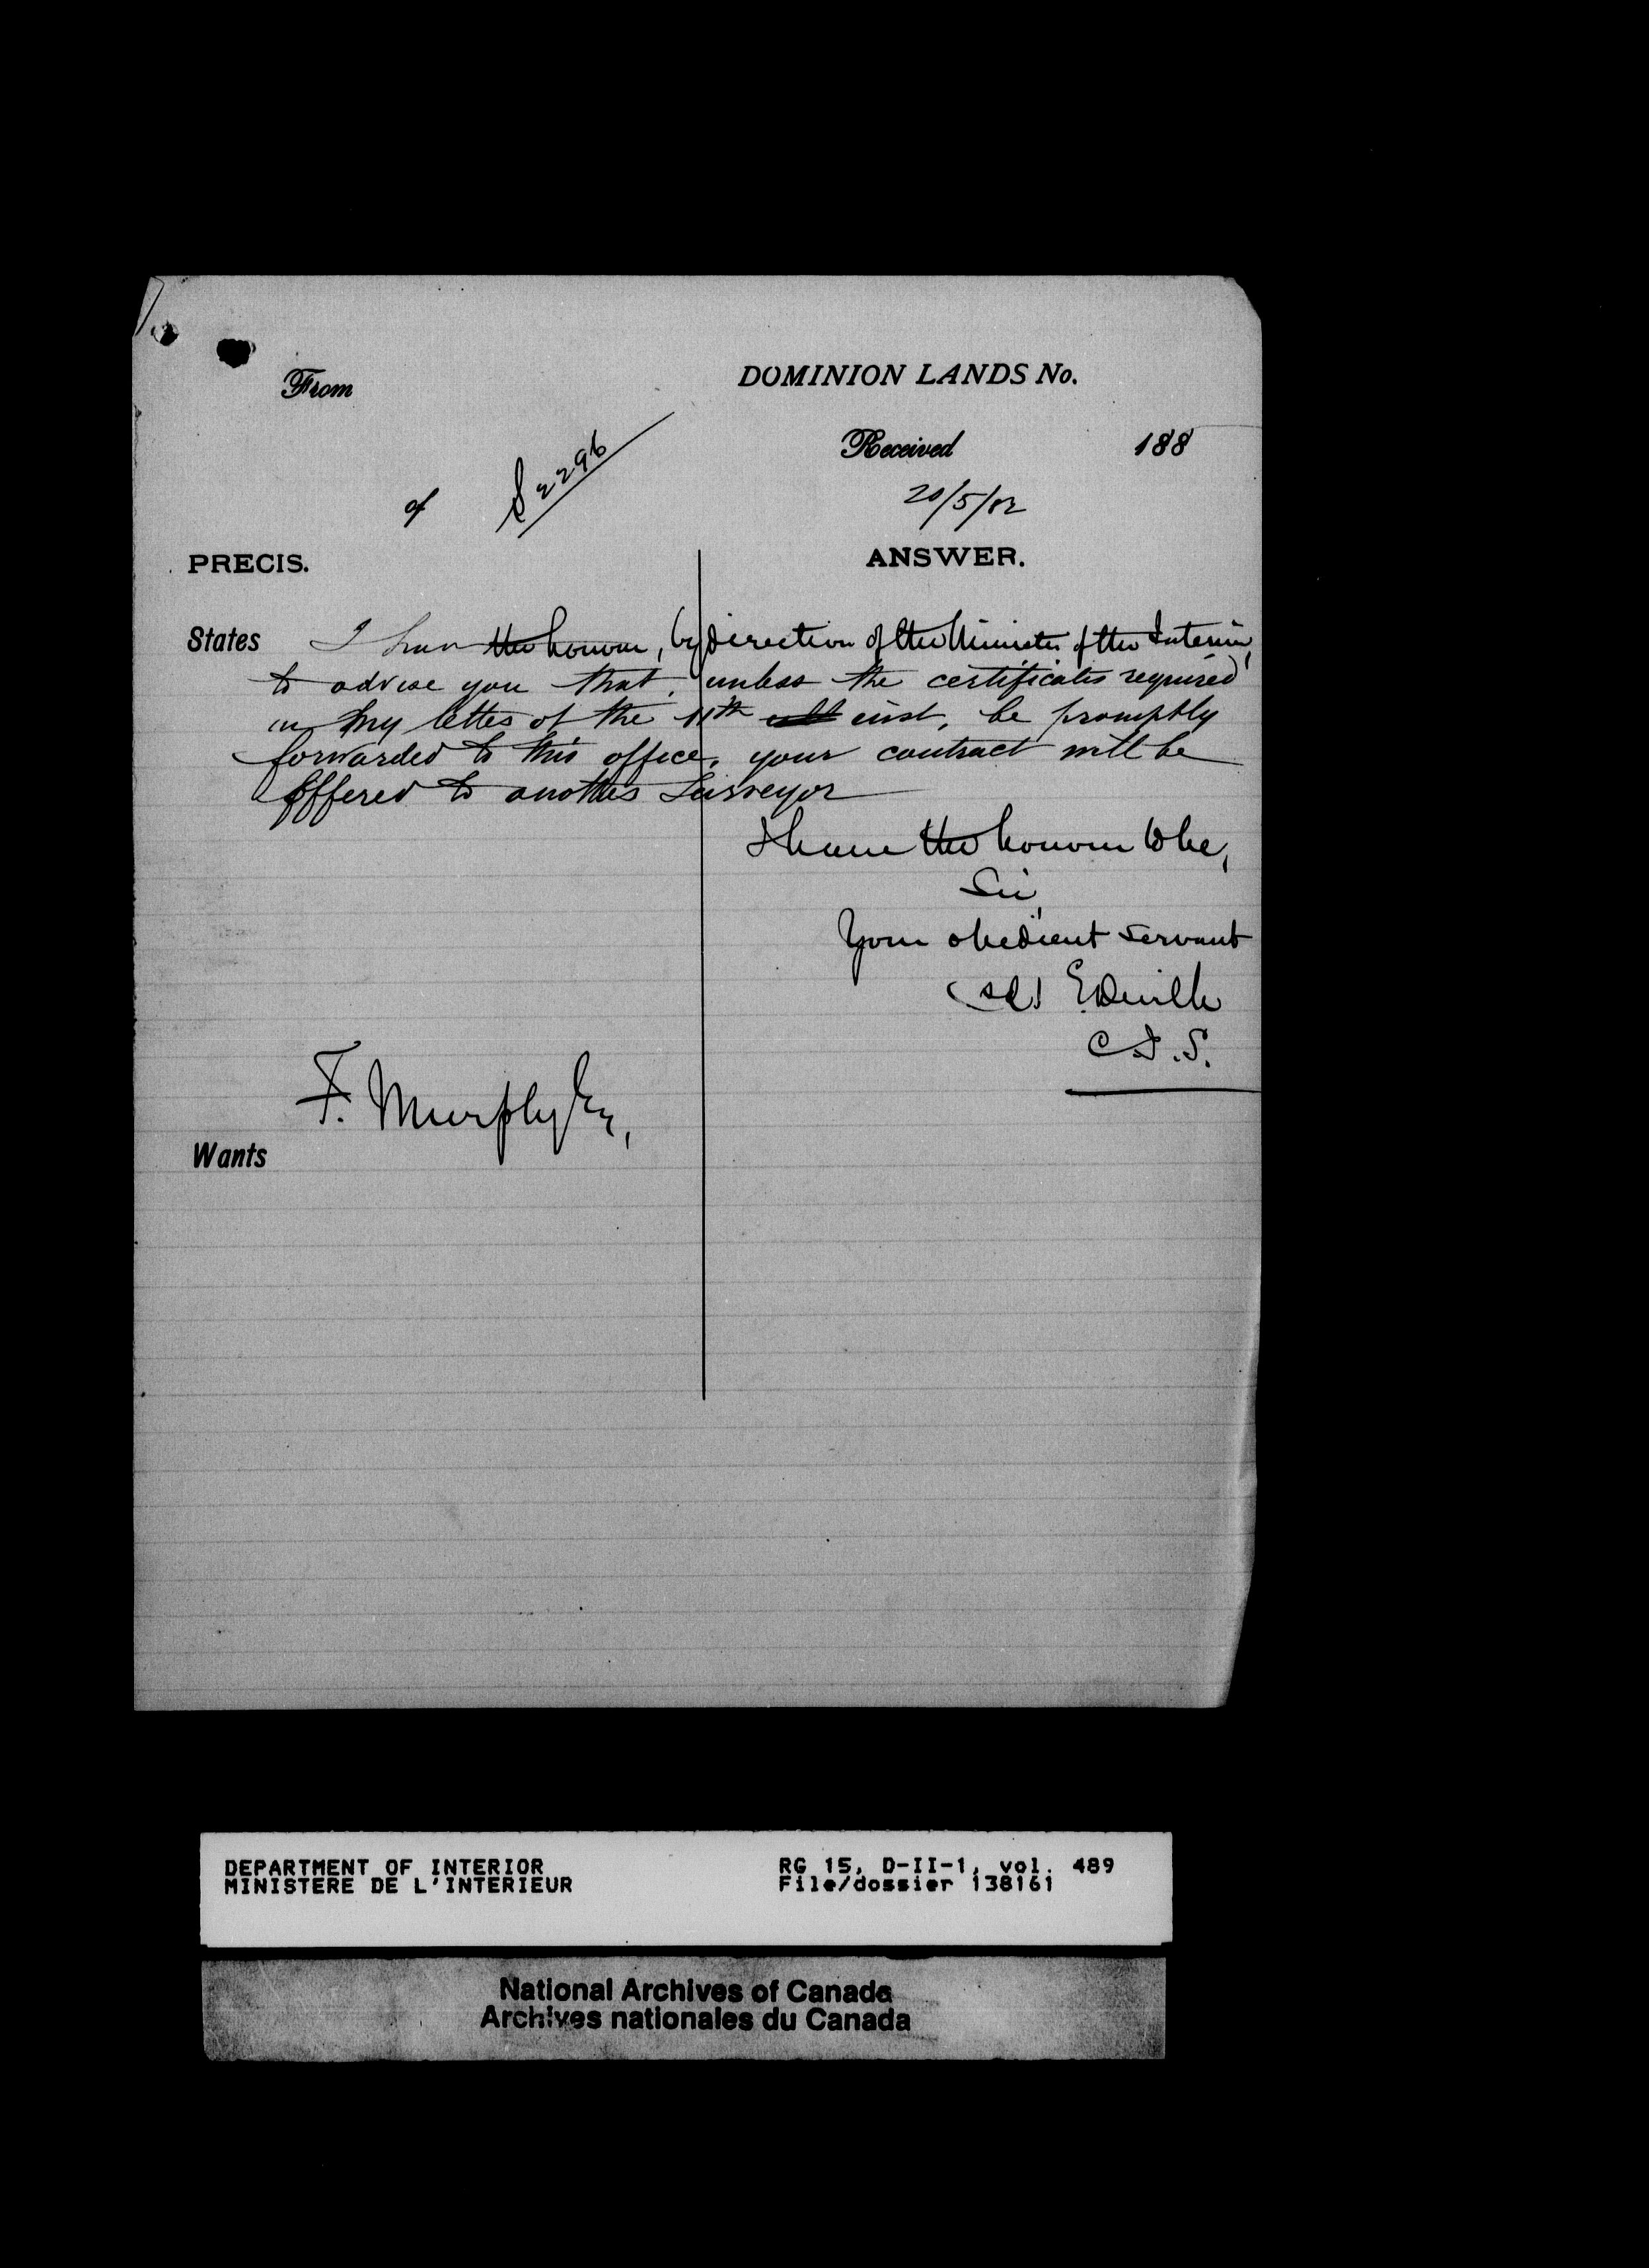 From
DOMINION LANDS No.
Received 188
of S 2296
20/5/82
PRECIS.
ANSWER.
States I have the honour, by direction of the Minister of the Interior,
to advise you that, unless the certificates required
in my letter of the 11th inst, be promptly
forwarded to this office, your contract will be
offered to another Surveyor
I have the honour to be,
Sir,
Your obedient servant
(sd) E. Deville
C.I.S.
F. Murphy Esq,
Wants
DEPARTMENT OF INTERIOR
MINISTERE DE L'INTERIEUR
RG 15, D-II-1, vol. 489
File/dossier 138161
National Archives of Canada
Archives nationales du Canada